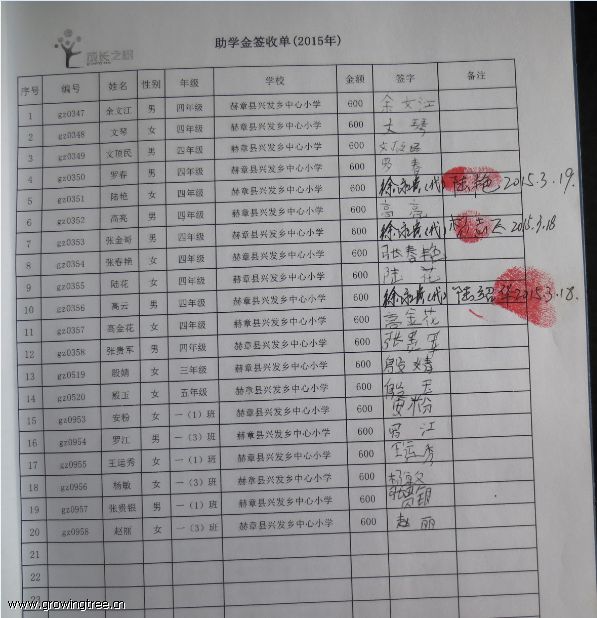 成长之根
助学金签收单(2015年)
序号 编号 姓名 性别 年级 学校 金额 签字 备注
1 gz0347 余文江 男 四年级 赫章县兴发乡中心小学 600 余文江
2 gz0348 文琴 女 四年级 赫章县兴发乡中心小学 600 文琴
3 gz0349 文顶民 男 四年级 赫章县兴发乡中心小学 600
4 gz0350 罗春 男 四年级 赫章县兴发乡中心小学 600 罗春
5 gz0351 陆艳 女 四年级 赫章县兴发乡中心小学 600 (代) 陆艳 2015.3.19.
6 gz0352 高亮 男 四年级 赫章县兴发乡中心小学 600 高亮
7 gz0353 张金哥 男 四年级 赫章县兴发乡中心小学 600 (代) 2015.3.18
8 gz0354 张春艳 女 四年级 赫章县兴发乡中心小学 600 张春艳
9 gz0355 陆花 女 四年级 赫章县兴发乡中心小学 600 陆花
10 gz0356 高云 男 四年级 赫章县兴发乡中心小学 600 (代) 陆绍华 2015.3.18.
11 gz0357 高金花 女 四年级 赫章县兴发乡中心小学 600 高金花
12 gz0358 张贵军 男 四年级 赫章县兴发乡中心小学 600 张贵军
13 gz0519 殷婧 女 三年级 赫章县兴发乡中心小学 600 殷婧
14 gz0520 殷玉 女 五年级 赫章县兴发乡中心小学 600 殷玉
15 gz0953 安粉 女 一（1）班 赫章县兴发乡中心小学 600 安粉
16 gz0954 罗江 男 一（3）班 赫章县兴发乡中心小学 600 罗江
17 gz0955 王运秀 女 一（1）班 赫章县兴发乡中心小学 600 王运秀
18 gz0956 杨敏 女 一（3）班 赫章县兴发乡中心小学 600 杨敏
19 gz0957 张贵银 男 一（1）班 赫章县兴发乡中心小学 600 张贵银
20 gz0958 赵丽 女 一（3）班 赫章县兴发乡中心小学 600 赵丽
21
22
23
www.growingtree.cn